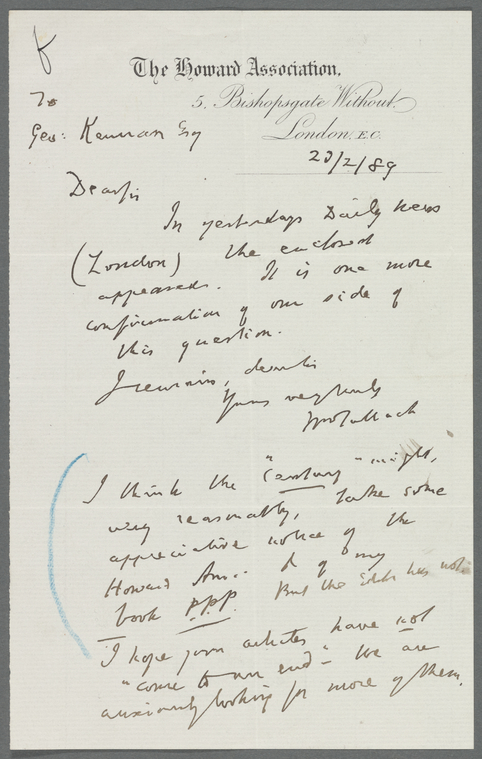 The Howard Association,
5, Bishopsgate Without,
London, E.C.
To
Geo: Kennan Esq
23/2/89
Dear Sir
In yesterdays Daily News
(London) the enclosed
appeared. It is one more
confirmation of our side of
this question.
I remain, dear sir
Yours very truly
Wm Tallack
I think the "Century" might,
very reasonably, take some
appreciative notice of the
Howard Assn. & of my
book PPP. But the Editor has not.
I hope your articles have not
"come to an end" - We are
anxiously looking for more of them.